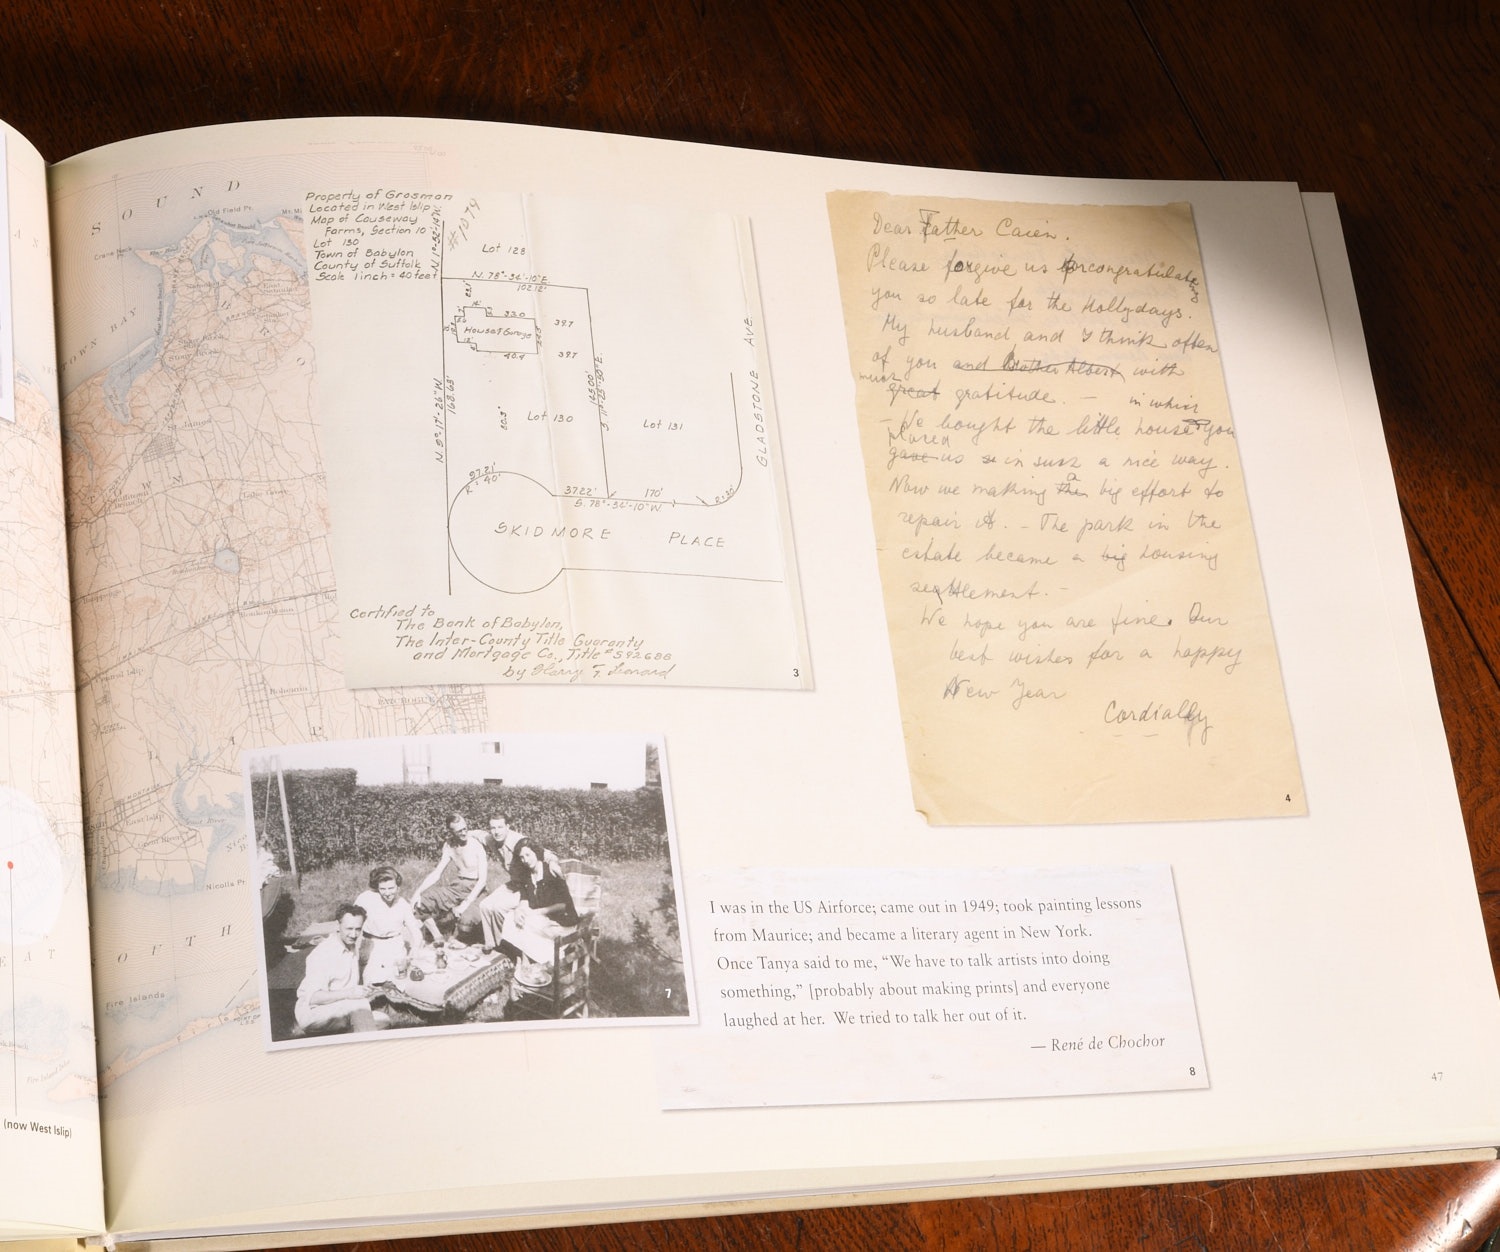 SOUND
Old Field Pt.
Property of Grosman
Located in West Islip
Map of Causeway
Farms, Section 10
Lot 130
Town of Babylon
County of Suffolk
Scale 1 inch = 40 feet
#1079
Lot 128
N. 78°-34'-10"E
102.12'
33.0
House & Garage
40.4
39.7
39.7
N. 9°-17'-26"W
168.63'
Lot 130
145.00'
Lot 131
GLADSTONE AVE.
97.21'
R = 40'
37.22'
170'
S. 78°-34'-10"W.
SKIDMORE PLACE
Certified to
The Bank of Babylon,
The Inter-County Title Guaranty
and Mortgage Co., Title #592688
by Harry F. Leonard
3
Dear Father Caien.
Please forgive us for congratulate
you so late for the Hollydays.
My husband and I think often
of you and Brother Albert with
much
great gratitude. — in which
– We bought the little house you
placed
gave us so in such a nice way.
Now we making a big effort to
repair it. – The park in the
estate became a big housing
seattlement. –
We hope you are fine. Our
best wishes for a happy
New Year
Cordially
4
TOWN BAY
St James
Bohemia
East Islip
Nicolls Pt.
SOUTH
Fire Islands
7
I was in the US Airforce; came out in 1949; took painting lessons
from Maurice; and became a literary agent in New York.
Once Tanya said to me, “We have to talk artists into doing
something,” [probably about making prints] and everyone
laughed at her. We tried to talk her out of it.
— René de Chochor
8
47
(now West Islip)